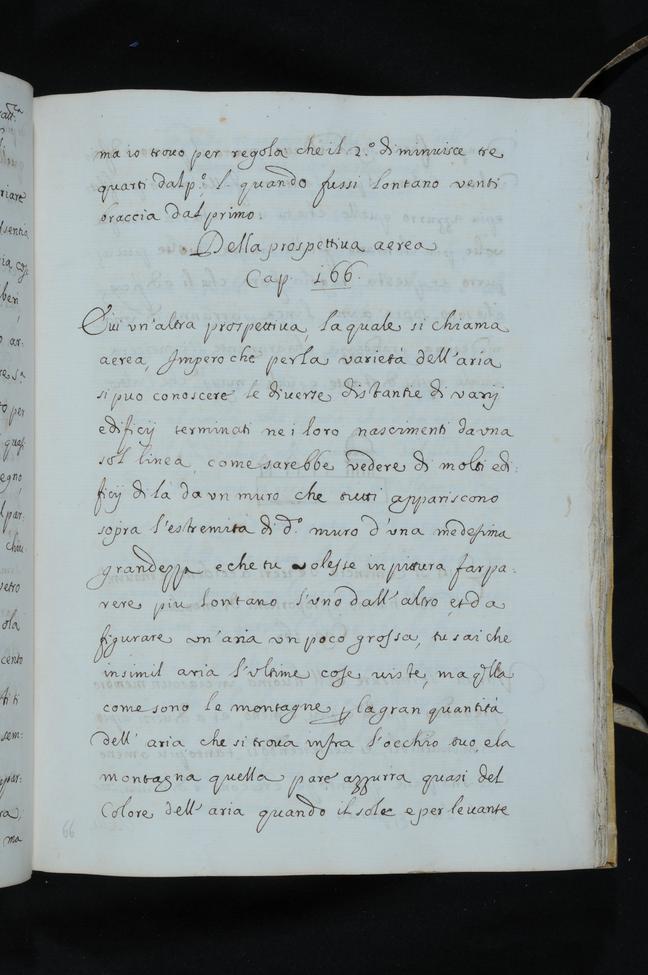 ma io trovo per regola che il 2.º diminuisce tre
quarti dal pº, l quando fussi lontano venti
braccia dal primo.
Della prospettiva aerea
Cap. 166.
Evvi un'altra prospettiva, la quale si chiama
aerea, Imperoche per la varietà dell'aria
si puo conoscere le diverse distantie di varij
edificij terminati ne i loro nascimenti da una
sol linea, come sarebbe vedere di molti edi:
ficij di là da un muro che tutti appariscono
sopra l'estremità di d.º muro d'una medesima
grandezza e che tu volesse in pittura far pa:
rere piu lontano l'uno dall'altro, et da
figurare un'aria un poco grossa, tu sai che
in simil aria l'ultime cose viste, ma qlla
come sono le montagne p la gran quantità
dell'aria che si trova infra l'occhio tuo, e la
montagna quella pare azzurra quasi del
Colore dell'aria quando il sole e per levante
66